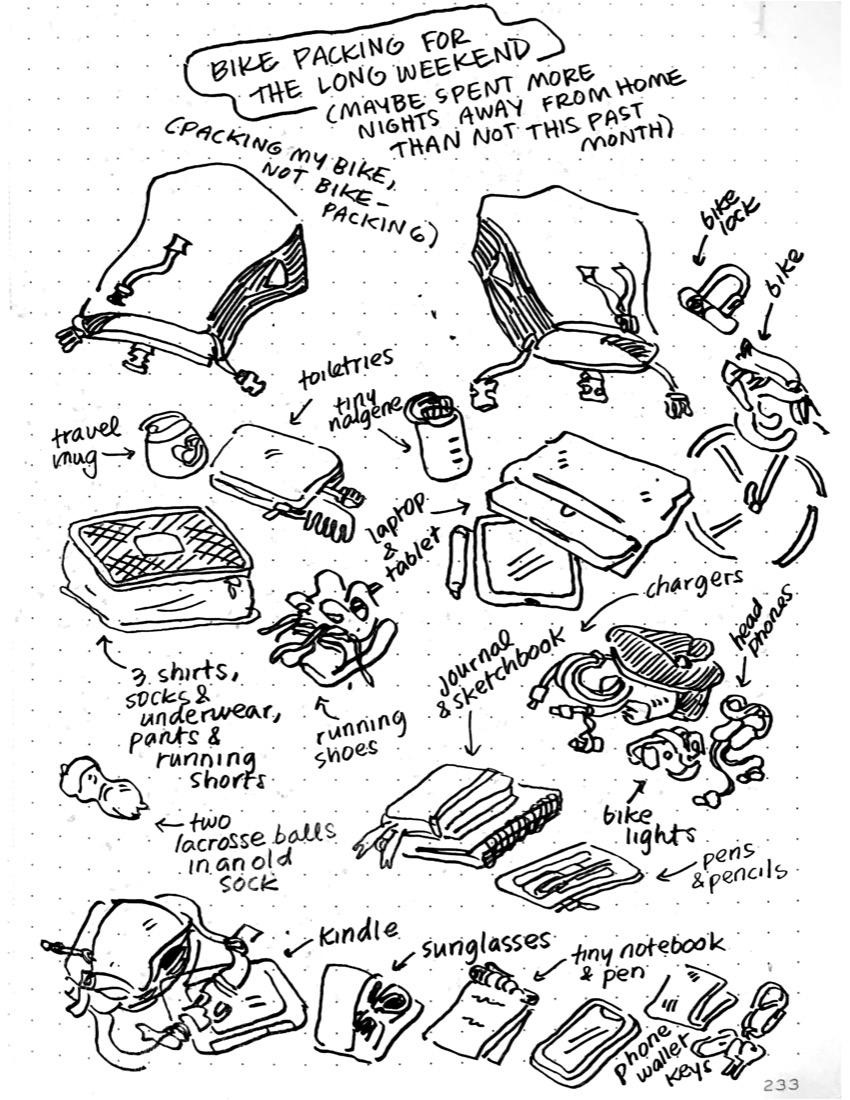 BIKE PACKING FOR
THE LONG WEEKEND
(MAYBE SPENT MORE
NIGHTS AWAY FROM HOME
THAN NOT THIS PAST
MONTH)
(PACKING MY BIKE,
NOT BIKE-
PACKING)
bike
lock
bike
toiletries
tiny
nalgene
travel
mug
laptop
&
tablet
chargers
head
phones
journal
& sketchbook
3 shirts,
socks &
underwear,
pants &
running
shorts
running
shoes
two
lacrosse balls
in an old
sock
bike
lights
pens
& pencils
Kindle
sunglasses
tiny notebook
& pen
phone
wallet
keys
233